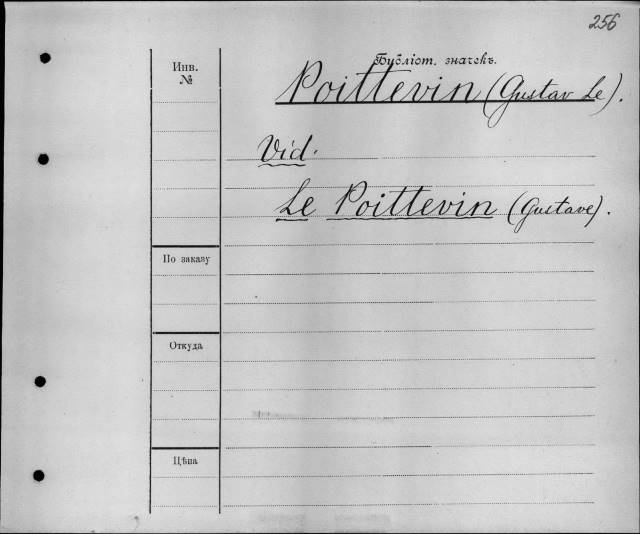 256
Бубліот. значекъ.
Инв.
№
Poittevin (Gustav Le).
Vid.
Le Poittevin (Gustave).
По заказу
Откуда
Цѣна